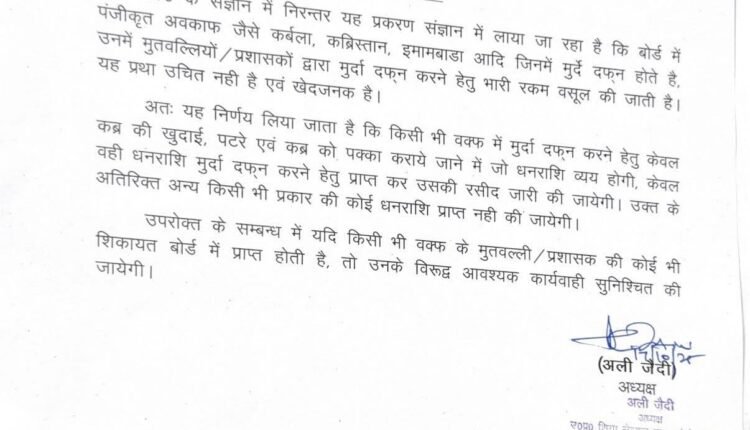 के संज्ञान में निरन्तर यह प्रकरण संज्ञान में लाया जा रहा है कि बोर्ड में
पंजीकृत अवकाफ जैसे कर्बला, कब्रिस्तान, इमामबाडा आदि जिनमें मुर्दे दफ्न होते है,
उनमें मुतवल्लियों/प्रशासकों द्वारा मुर्दा दफ्न करने हेतु भारी रकम वसूल की जाती है।
यह प्रथा उचित नही है एवं खेदजनक है।
अतः यह निर्णय लिया जाता है कि किसी भी वक्फ में मुर्दा दफ्न करने हेतु केवल
कब्र की खुदाई, पटरे एवं कब्र को पक्का कराये जाने में जो धनराशि व्यय होगी, केवल
वही धनराशि मुर्दा दफ्न करने हेतु प्राप्त कर उसकी रसीद जारी की जायेगी। उक्त के
अतिरिक्त अन्य किसी भी प्रकार की कोई धनराशि प्राप्त नही की जायेगी।
उपरोक्त के सम्बन्ध में यदि किसी भी वक्फ के मुतवल्ली/प्रशासक की कोई भी
शिकायत बोर्ड में प्राप्त होती है, तो उनके विरूद्व आवश्यक कार्यवाही सुनिश्चित की
जायेगी।
(अली जैदी)
अध्यक्ष
अली जैदी
अध्यक्ष